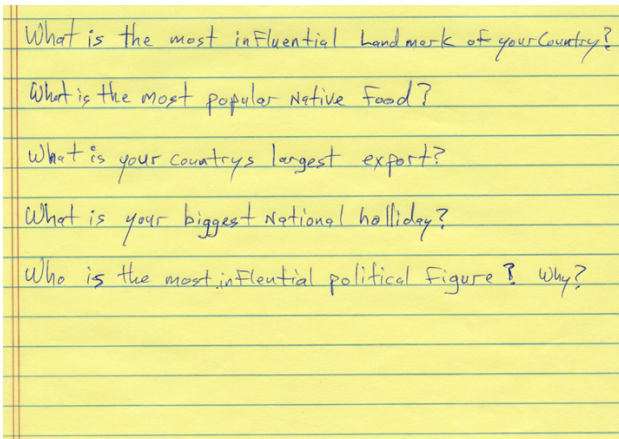 What is the most influential Landmark of your Country?
What is the most popular Native food?
What is your Countrys largest export?
What is your biggest National holliday?
Who is the most inflential political figure? Why?